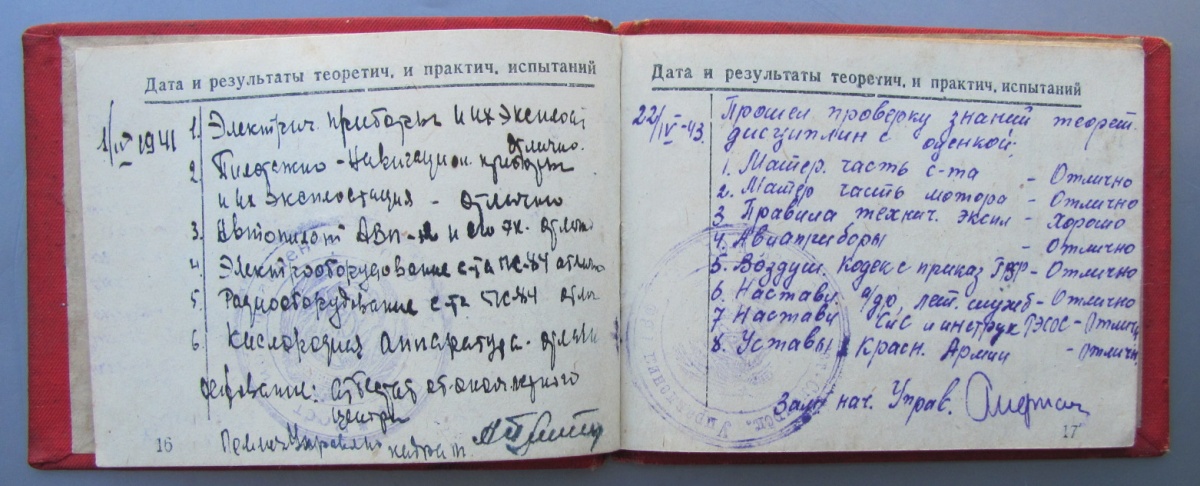 Дата и результаты теоретич. и практич. испытаний
1/IV 1941
1. Электрич. приборы и их эксплоат
отлично.
2. Пилотажно-Навигацион. приборы
и их эксплоатация - отлично
3. Автопилот АВП- и его эк. отлично
4 Электрооборудование с-та ПС-84 отлично
5 Радиооборудование с-та ПС-84 отли
6 Кислородная аппаратура - отлично
аттестат
центра
16
Дата и результаты теоретич. и практич. испытаний
22/IV-43.
Прошел проверку знаний теорет.
дисциплин с оценкой:
1. Матер. часть с-та - Отлично
2. Матер часть мотора - Отлично
3. Правила технич. экспл - Хорошо
4. Авиаприборы - Отлично
5. Воздуш. Кодекс приказ - Отлично
6. Наставл. лет. служб - Отлично
7 Наставл и инструк - Отличн
8. Уставы Красн. Армии - Отличн.
Зам. нач. Управ.
17